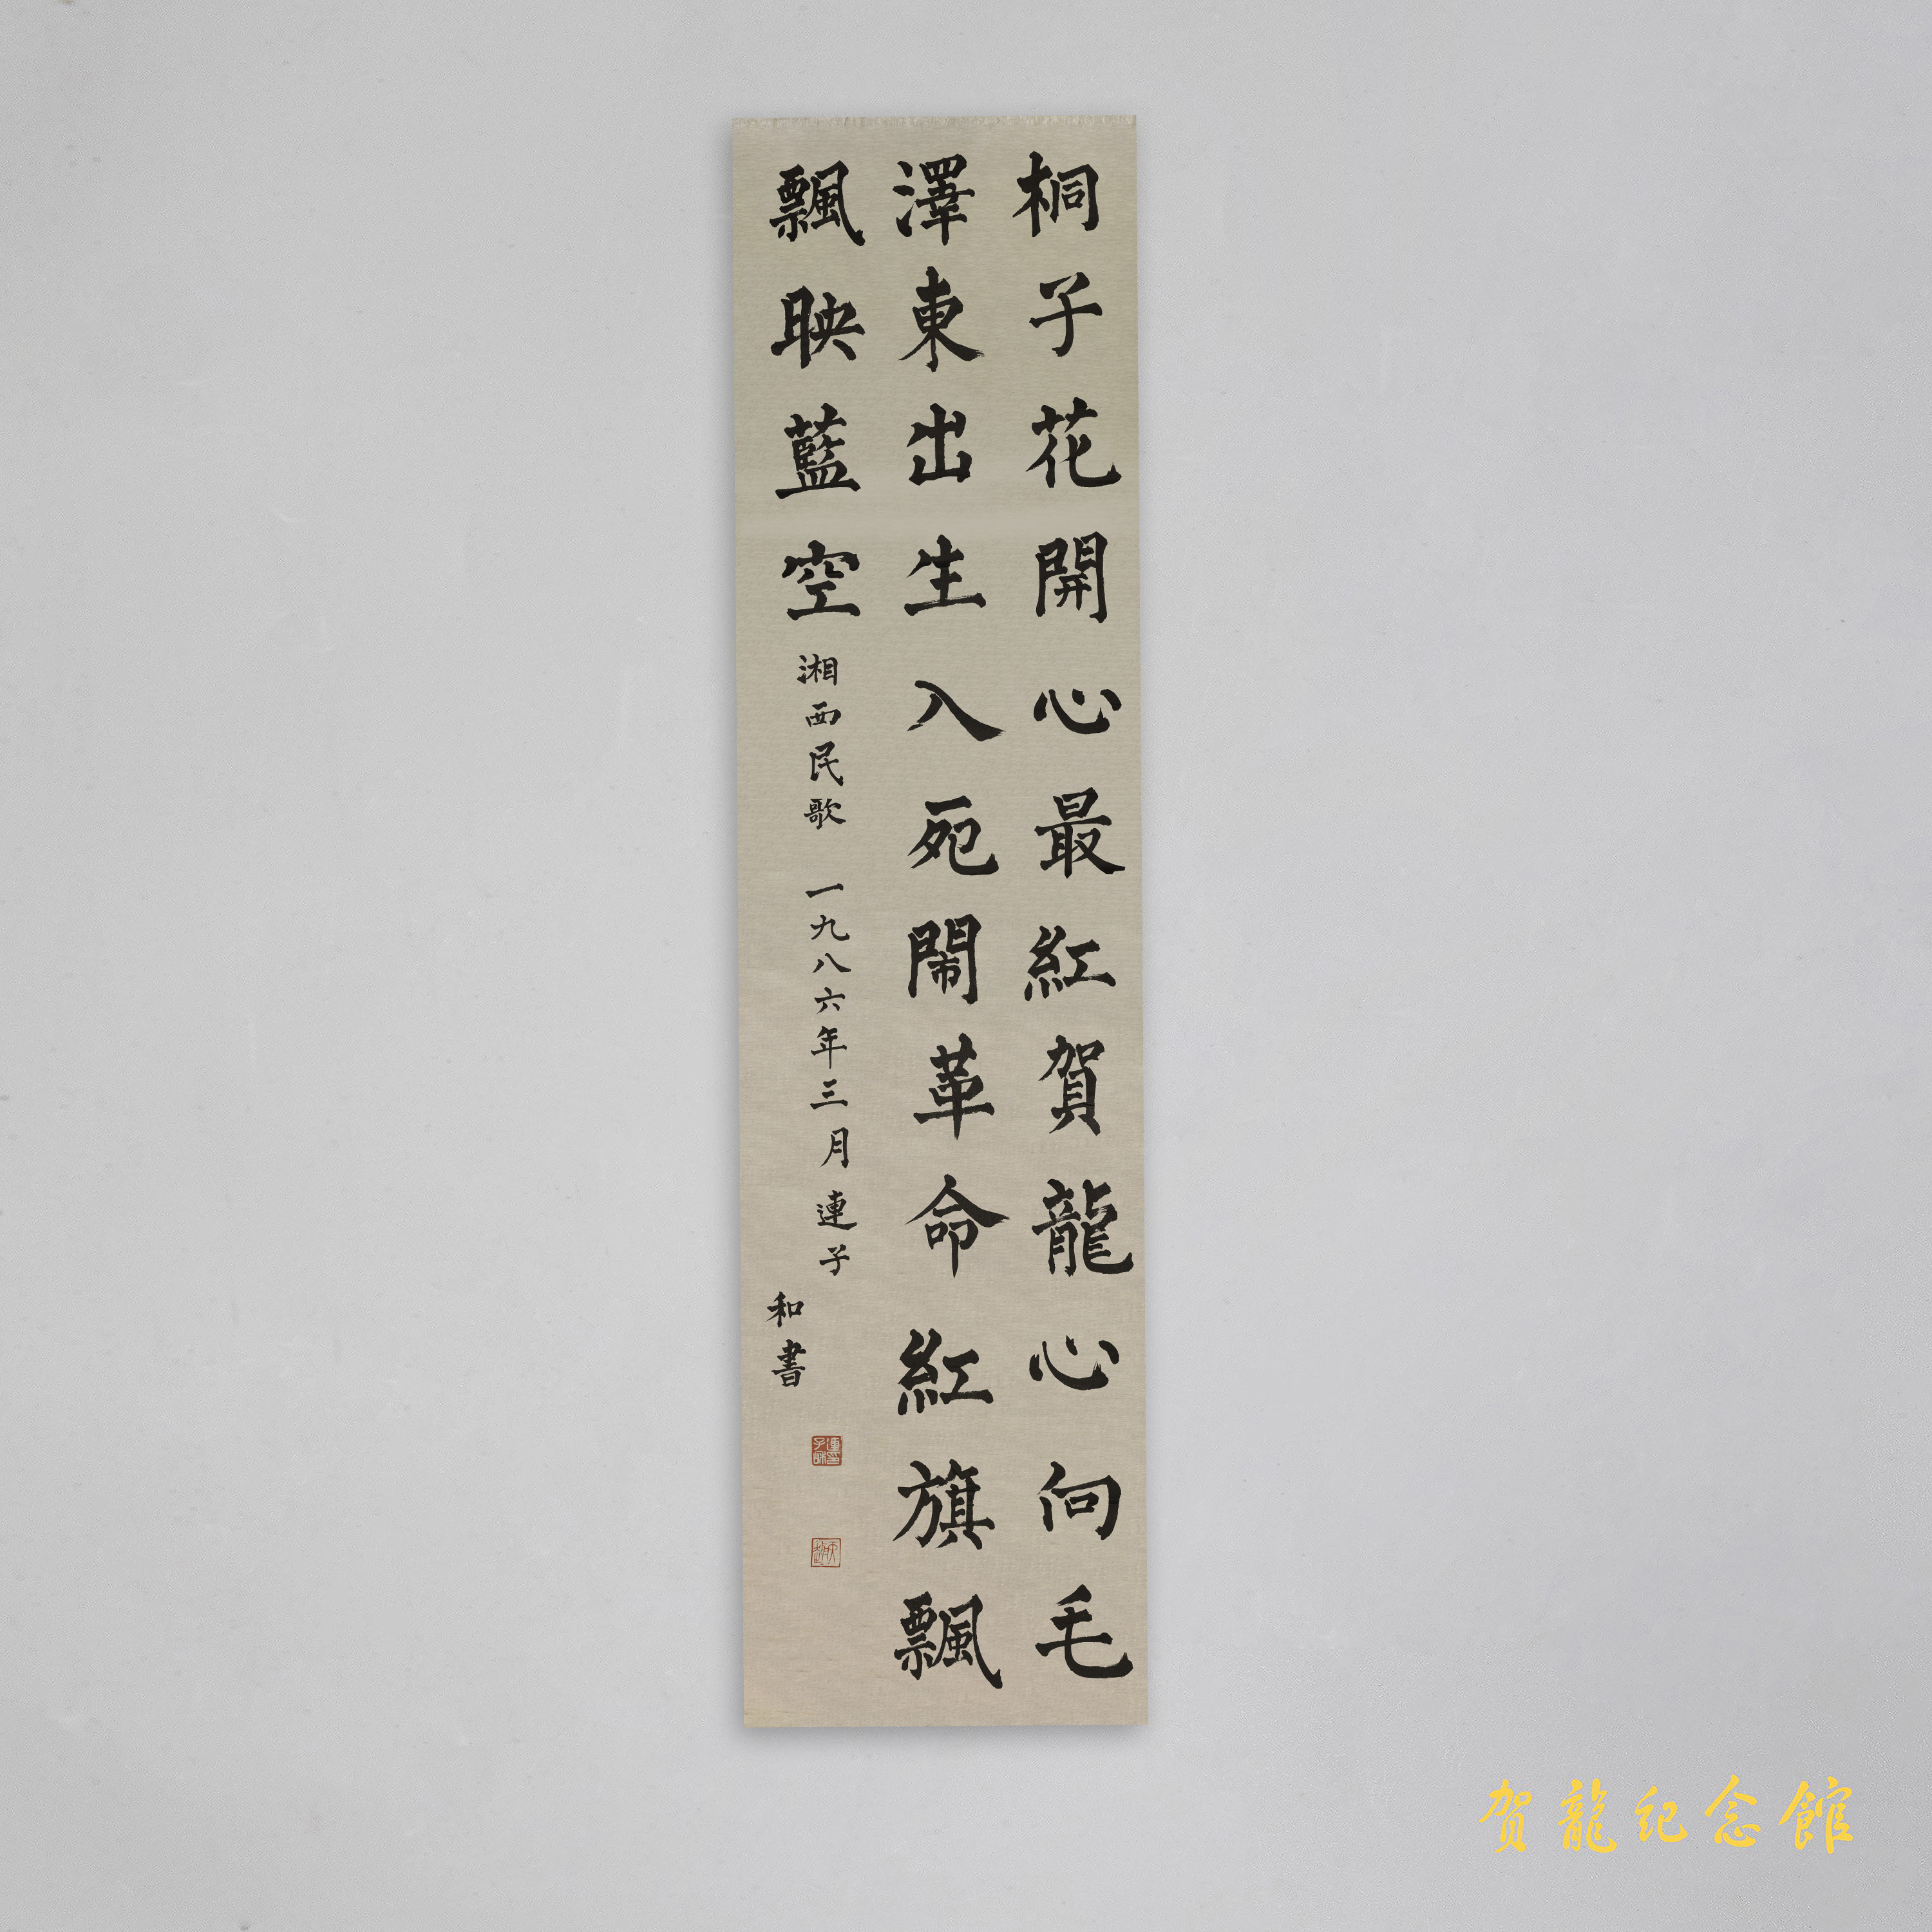 桐子花開心最紅賀龍心向毛
澤東出生入死鬧革命紅旗飄
飄映藍空
湘西民歌 一九八六年三月連子
和書
賀龍纪念館